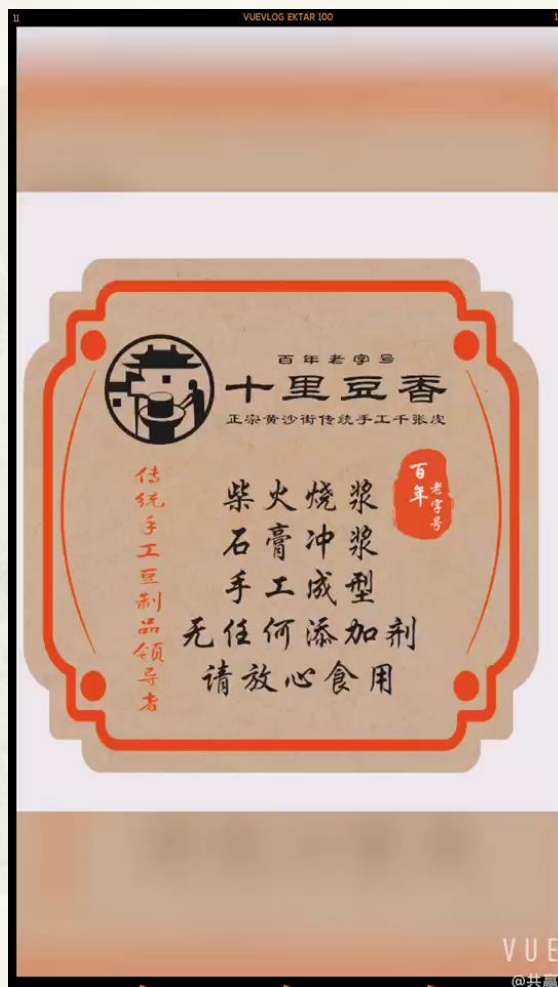 11
VUEVLOG EKTAR 100
百年老字号
十里豆香
正宗黄沙街传统手工千张皮
传统手工豆制品领导者
百年
老字号
柴火烧浆
石膏冲浆
手工成型
无任何添加剂
请放心食用
VUE
@共赢